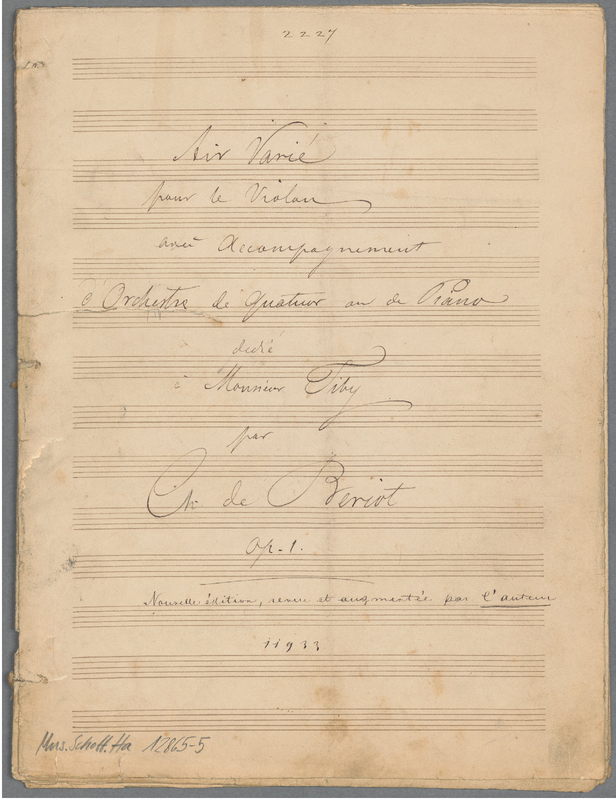 2227
Air Varié
pour le Violon
avec Accompagnement
d'Orchestre de Quatuor ou de Piano
dedié
à Monsieur Tiby
par
Ch. de Beriot
Op. 1.
Nouvelle édition, revue et augmentée par l'auteur
11933
Mus. Schott. Ha 12865-5